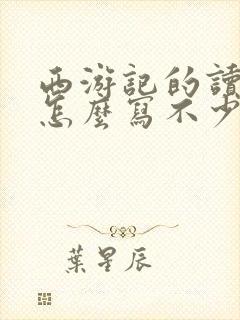 西游記的讀
怎麼寫不少
葉星辰